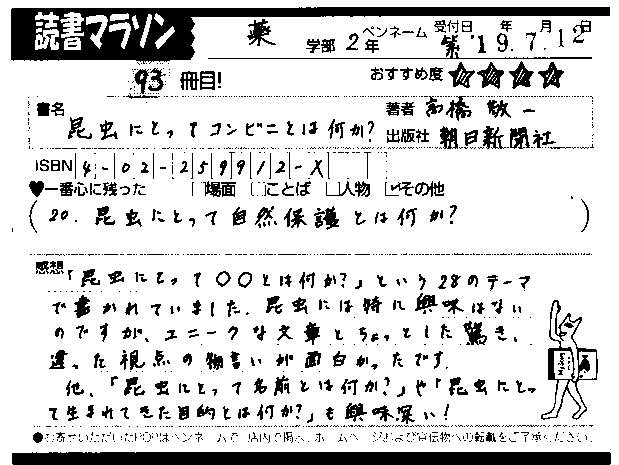 読書マラソン
薬 学部 2年 ペンネーム 受付日 '19年 7月 12日
93 冊目!
おすすめ度 ☆☆☆☆
書名 昆虫にとってコンビニとは何か?
著者 高橋敬一
出版社 朝日新聞社
ISBN 4-02-259912-X
♥一番心に残った □場面 □ことば □人物 ☑その他
(20. 昆虫にとって自然保護とは何か?)
感想
「昆虫にとって〇〇とは何か?」という28のテーマ
で書かれていました。昆虫には特に興味はない
のですが、ユニークな文章とちょっとした驚き、
違った視点の物言いが面白かったです。
他、「昆虫にとって名前とは何か?」や「昆虫にとっ
て生まれてきた目的とは何か?」も興味深い!
●お寄せいただいたPOPはペンネームで、店内で掲示、ホームページおよび宣伝物への転載をご了承ください。